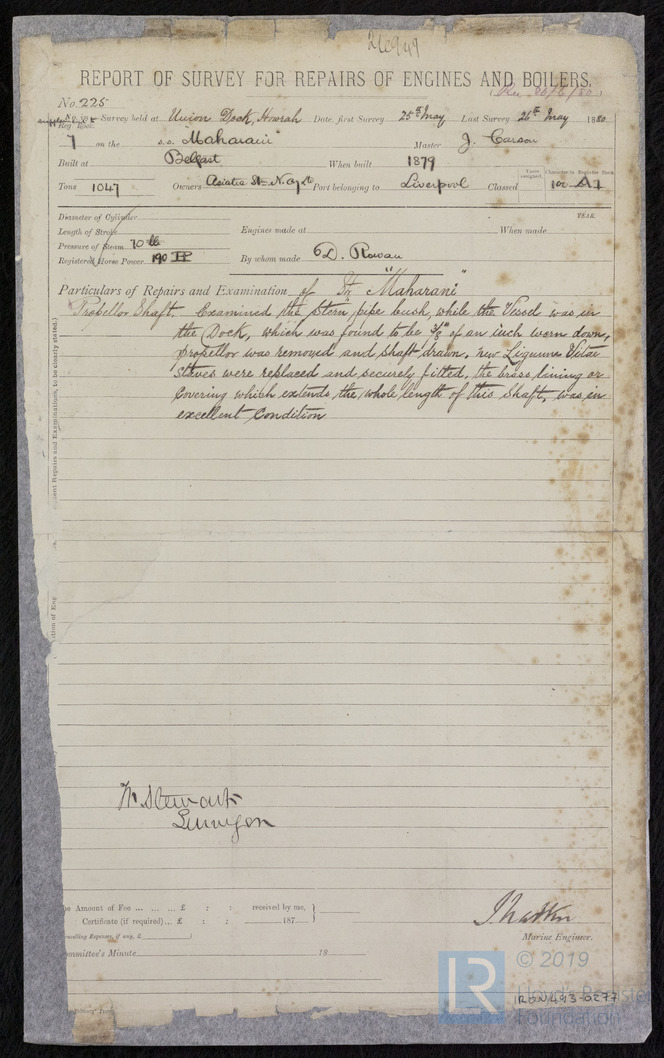 REPORT OF SURVEY FOR REPAIRS OF ENGINES AND BOILERS.
No. 225
No. in Survey held at Union Dock, Howrah Date, first Survey 25th May Last Survey 26th May 1880
Reg. Book.
7 on the s.s. "Maharani" Master J. Carson
Built at Belfast When built 1879
Tons 1047 Owners Asiatic Port belonging to Liverpool Classed 100 A1
YEAR.
Diameter of Cylinder
Length of Stroke
Engines made at When made
Pressure of Steam 70 lb
Registered Horse Power 190 HP
By whom made D. Rowan
Particulars of Repairs and Examination of "Maharani"
Propellor Shaft. Examined the Stern pipe bush, while the Vessel was in
the Dock, which was found to be 3/8" of an inch worn down,
propellor was removed and shaft drawn. new Lignum Vitae
Staves were replaced and securely fitted. the brass lining or
Covering which extends the whole length of this Shaft, was in
excellent Condition
W. Stewart
Surveyor
Amount of Fee ... ... ... £ : : received by me,
Certificate (if required) ... £ : : 187
Travelling Expenses, if any, £
Marine Engineer.
Committee's Minute 18
© 2019
LR
Lloyd's Register
Foundation